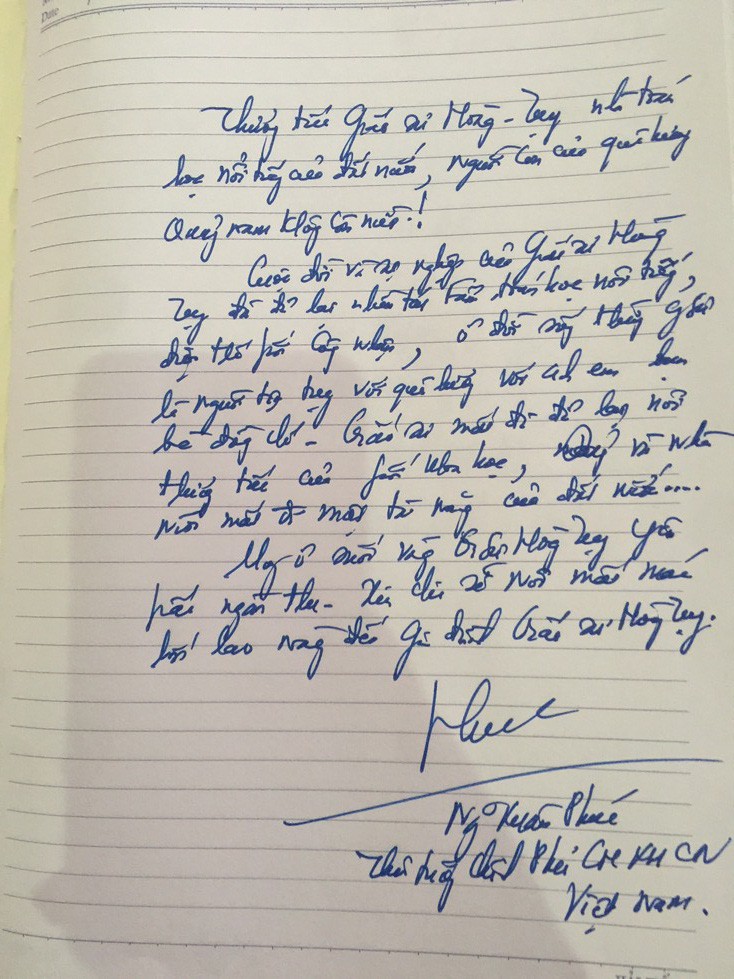 Thương tiếc Giáo sư Hoàng Tụy nhà toán
học nổi tiếng của đất nước, người con của quê hương
Quảng nam không còn nữa.!
Cuộc đời và sự nghiệp của Giáo sư Hoàng
Tụy đã để lại nhiều nổi tiếng,
được thế giới công nhận, ở đời sống thường Giáo sư
là người với quê hương với anh em bạn
bè đồng chí - Giáo sư mất đi để lại nỗi
thương tiếc của giới khoa học, và nhà
nước mất đi một tài năng của đất nước....
Mong ở suối vàng Giáo sư Hoàng Tụy yên
giấc ngàn thu - Xin chia sẻ nỗi mất mát
lớn lao này đến Gia đình Giáo sư Hoàng Tụy.
Phuc
Ng Xuân Phúc
Thủ tướng Chính Phủ CHXHCN
Việt Nam.